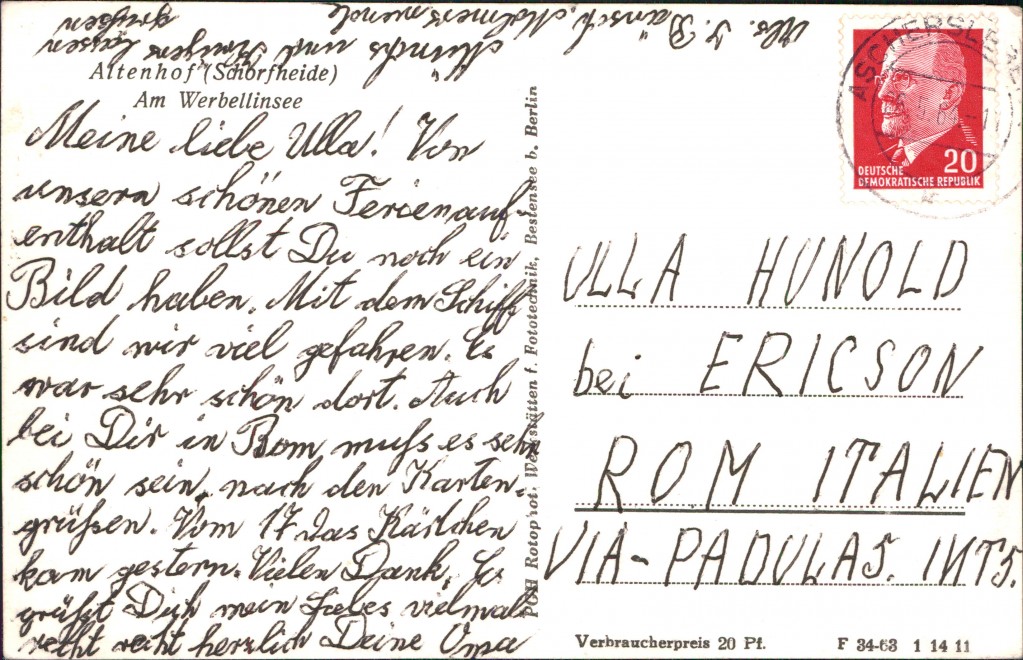 Altenhof (Schorfheide)
Am Werbellinsee
Meine liebe Ulla! Von
unsern schönen Ferienauf-
enthalt sollst Du noch ein
Bild haben. Mit dem Schiff
sind wir viel gefahren. Es
war sehr schön dort. Auch
bei Dir in Rom muſs es sehr
schön sein, nach den Karten-
grüſsen. Vom 17. das Kärtchen
kam gestern. Vielen Dank. Es
grüſst Dich mein Liebes vielmals
recht recht herzlich Deine Oma
und
lassen
grüßen
PGH Rotophot, Werkstätten f. Fototechnik, Bestensee b. Berlin
ASCHERSLEBEN
20
DEUTSCHE
DEMOKRATISCHE REPUBLIK
ULLA HUNOLD
bei ERICSON
ROM ITALIEN
VIA-PADULAS. INTS.
Verbraucherpreis 20 Pf. F 34-63 1 14 11